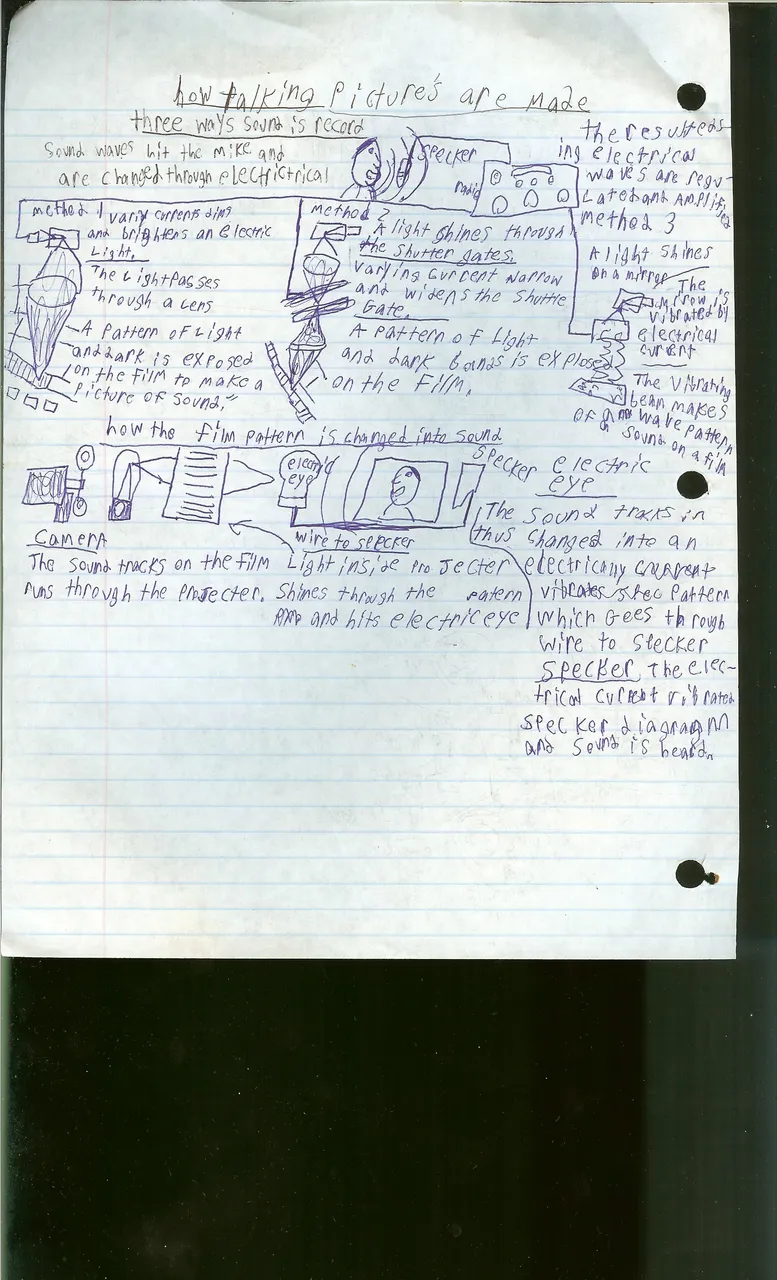 how talking Pictures are made
three ways sound is record
Sound waves hit the mike and
are changed through electrictrical
specker
radio
the resulteds-
ing electrical
waves are regu-
Lated and Amplified
method 1 varix currents dims
and brightens an electric
Light.
The Light passes
through a Lens
A Pattern of Light
and dark is exposed
on the film to make a
Picture of Sound."
method 2
A light Shines through
the Shutter gates.
varying Current Narrow
and widens the Shuttle
Gate.
A pattern of Light
and dark bands is explosed
on the Film.
method 3
A light Shines
on a mirror
The
mirrow is
vibrated by
electrical
current
The Vibrating
beam makes
wave pattern
Of Sound on a film
how the film pattern is changed into sound
electric
eye
specker
wire to specker
Camera
The Sound tracks on the film
runs through the Projecter.
Light inside Projecter
Shines through the patern
and hits electric eye
electric
eye
The Sound tracks in
thus changed into an
electrically current
vibrates spec Pattern
which Goes through
wire to Slecker
Specker The elec-
trical Current vibrated
specker diagragm
and Sound is heard.